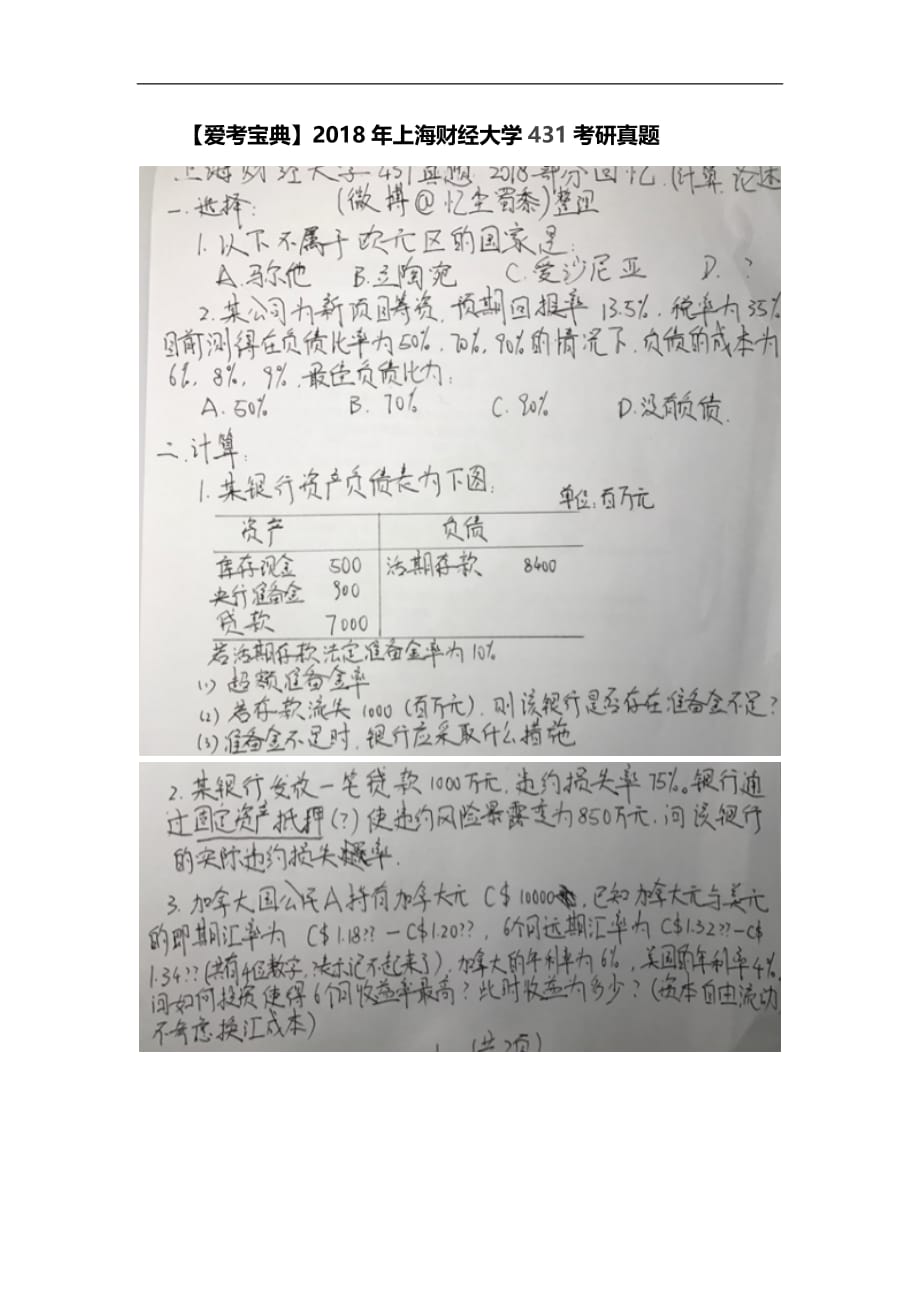 【爱考宝典】2018年上海财经大学431考研真题
上海财经大学431真题 2018部分回忆 (计算、论述
(微博@忆尘蜀黍)整理
一.选择:
1.以下不属于欧元区的国家是:
A.马尔他 B.立陶宛 C.爱沙尼亚 D.?
2.某公司为新项目筹资,预期回报率13.5%,税率为35%
目前测得在负债比率为50%,70%,90%的情况下,负债的成本为
6%,8%,9%,最佳负债比为:
A.50% B.70% C.90% D.没有负债.
二.计算:
1.某银行资产负债表为下图: 单位:百万元
资产 负债
库存现金 500 活期存款 8400
央行准备金 900
贷款 7000
若活期存款法定准备金率为10%
(1)超额准备金率
(2)若存款流失1000(百万元),则该银行是否存在准备金不足?
(3)准备金不足时,银行应采取什么措施
2.某银行发放一笔贷款1000万元,违约损失率75%。银行通
过固定资产抵押(?)使违约风险暴露变为850万元.问该银行
的实际违约损失率.
3.加拿大国公民A持有加拿大元C$10000,已知加拿大元与美元
的即期汇率为C$1.18??-C$1.20??,6个月远期汇率为C$1.32??-C$
1.34??(共有4位数字,表示记不起来了),加拿大的年利率为6%,美国的年利率4%,
问如何投资使得6个月收益率最高?此时收益为多少?(资本自由流动,
不考虑换汇成本)
(共2页)